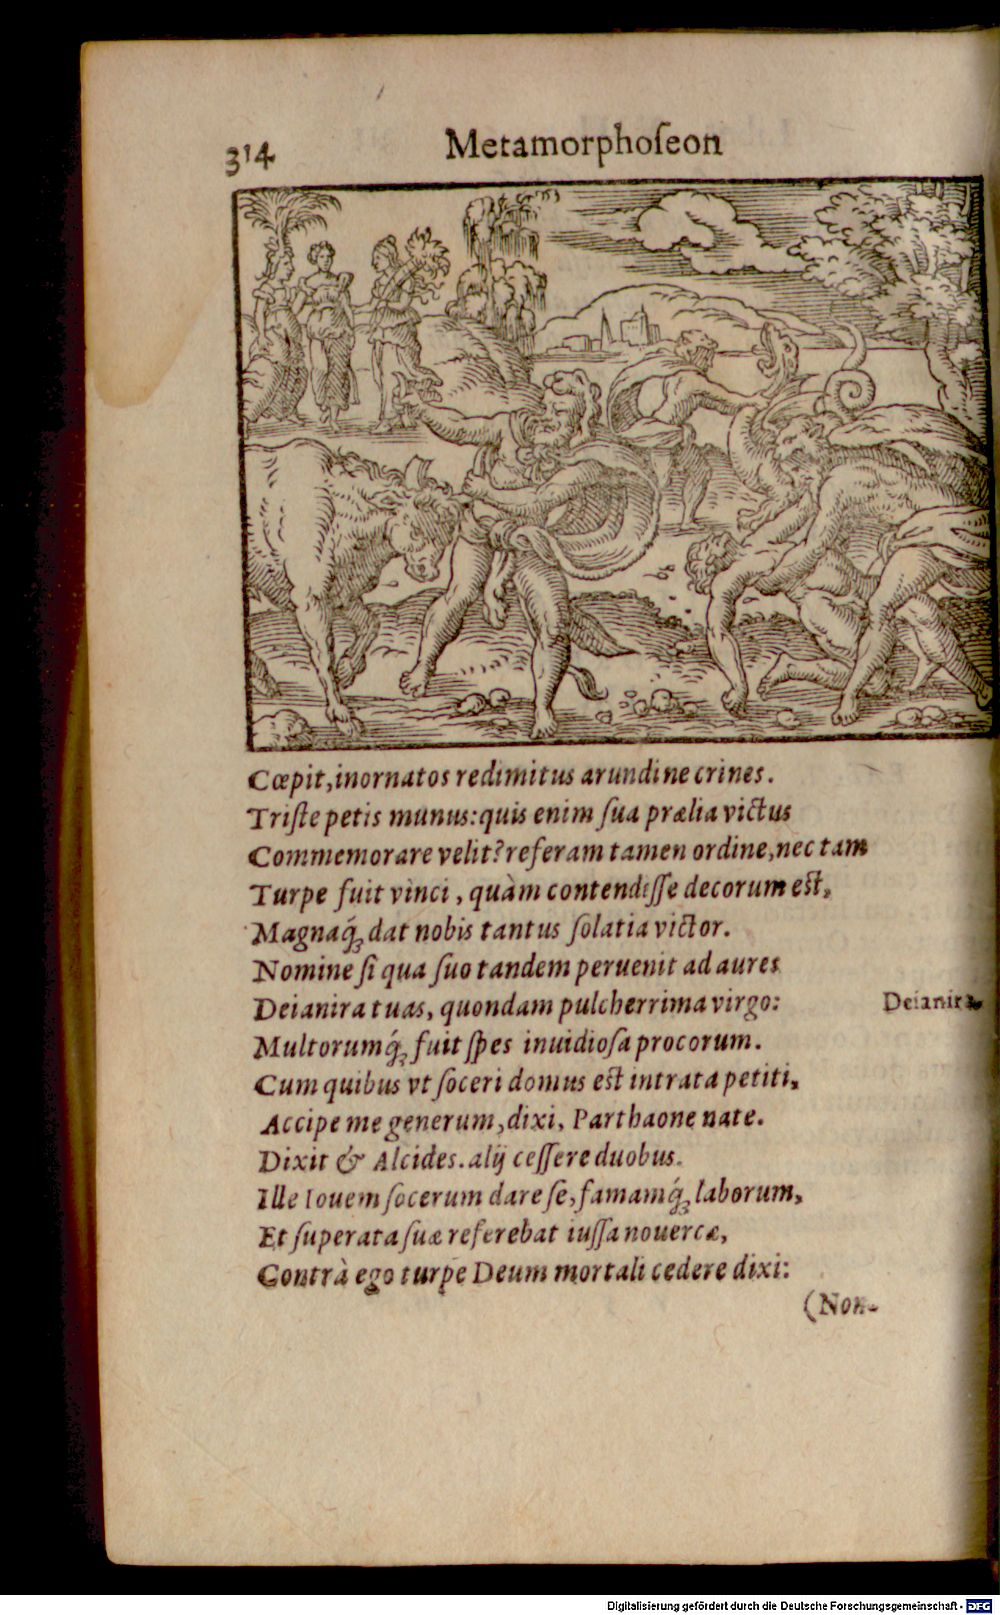 314
Metamorphoſeon
Cœpit, inornatos redimitus arundine crines.
Triſte petis munus: quis enim ſua prælia victus
Commemorare velit? referam tamen ordine, nec tam
Turpe fuit vinci, quàm contendiſſe decorum eſt,
Magnaq́ꝫ dat nobis tantus ſolatia victor.
Nomine ſi qua ſuo tandem peruenit ad aures
Deianira tuas, quondam pulcherrima virgo:
Deianira
Multorumq́ꝫ fuit ſpes inuidioſa procorum.
Cum quibus vt ſoceri domus eſt intrata petiti,
Accipe me generum, dixi, Parthaone nate.
Dixit & Alcides. alij ceſſere duobus.
Ille Iouem ſocerum dare ſe, famamq́ꝫ laborum,
Et ſuperata ſuæ referebat iuſſa nouercæ,
Contrà ego turpe Deum mortali cedere dixi:
(Non-
Digitalisierung gefördert durch die Deutsche Forschungsgemeinschaft - DFG